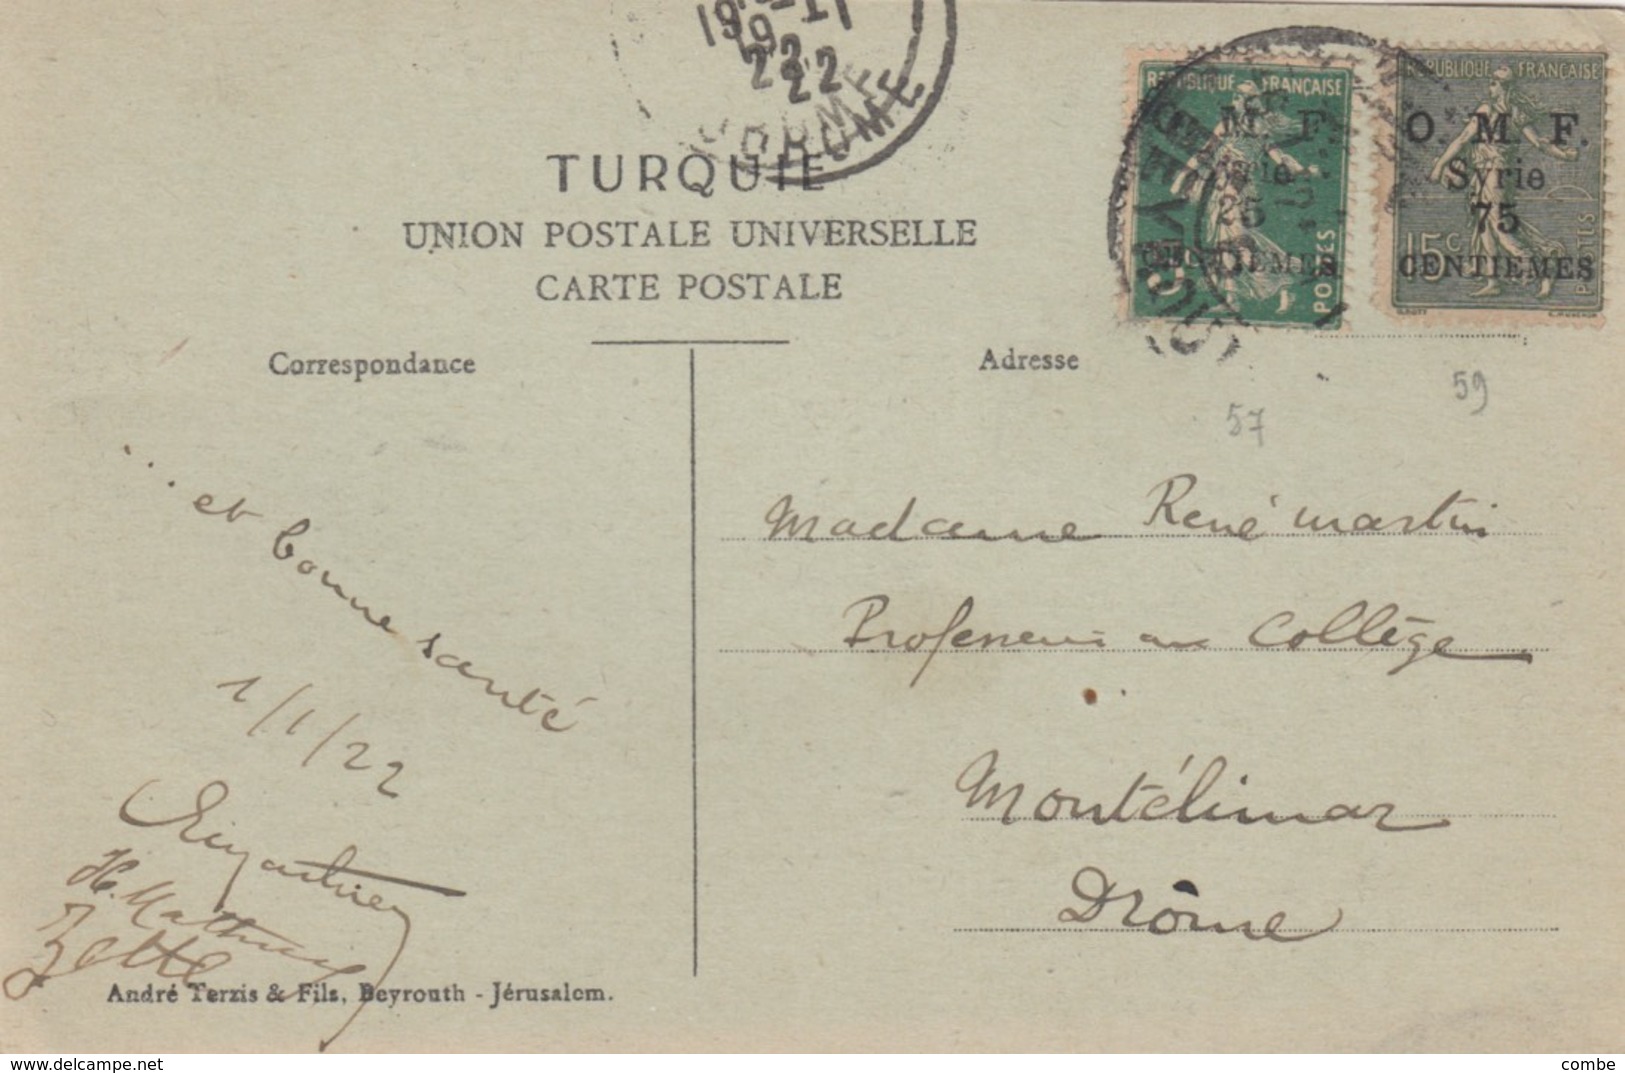 19
22
DROME
TURQUIE
UNION POSTALE UNIVERSELLE
CARTE POSTALE
Correspondance
Adresse
REPUBLIQUE FRANÇAISE
M. F.
25
CENTIEMES
POSTES
BEYROUTH
REPUBLIQUE FRANÇAISE
O. M. F.
Syrie
75
CENTIEMES
15c
POSTES
57
59
... et bonne santé
1/1/22
H. Mathieu
Zette
Madame René Martin
Professeur au Collège
Montélimar
Drôme
André Terzis & Fils, Beyrouth - Jérusalem.
www.delcampe.net
combe